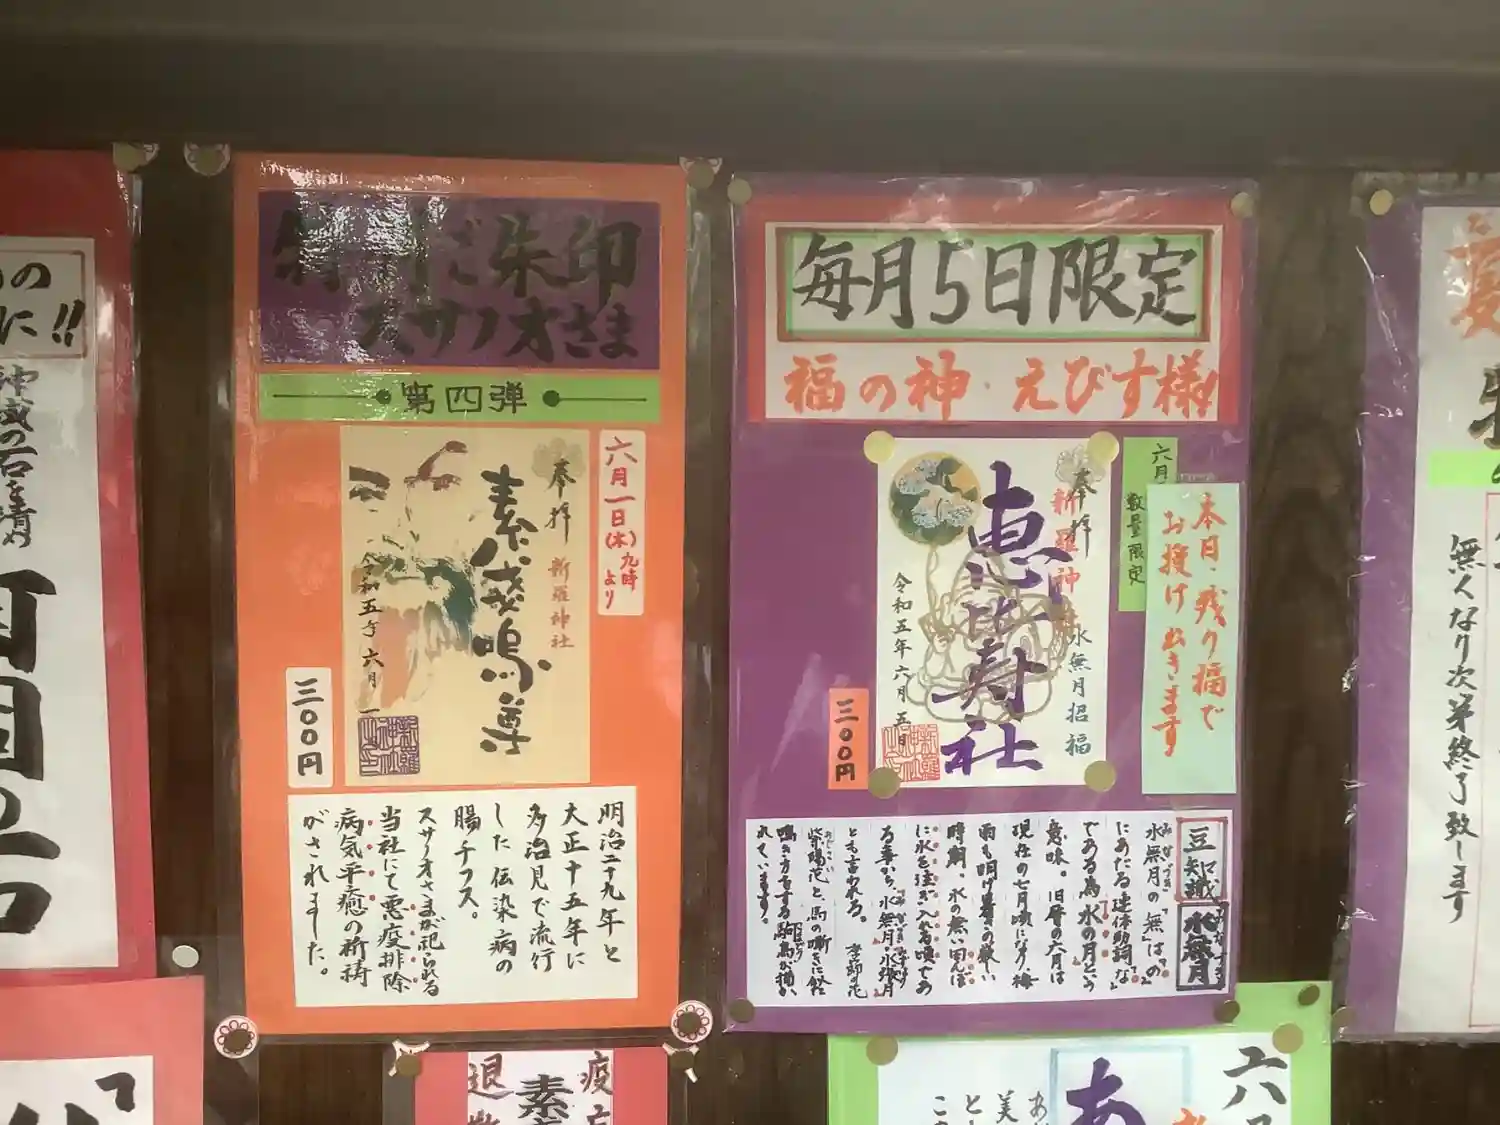 特別ご朱印
スサノオさま
第四弾
六月一日(木)九時
より
奉拝
新羅神社
素戔嗚尊
令和五年六月一
三〇〇円
明治二十九年と
大正十五年に
多治見で流行
した伝染病の
腸チフス。
スサノオさまが祀られる
当社にて悪疫排除
病気平癒の祈祷
がされました。
毎月5日限定
福の神・えびす様!
六月
数量限定
本日、残り福で
お授け出きます
奉拝
新羅神
水無月招福
恵比寿社
令和五年六月五日
三〇〇円
豆知識
水無月
水無月の「無」は「の」
にあたる連体助詞「な」
である為「水の月」という
意味。旧暦の六月は
現在の七月頃になり、梅
雨も明け暑さの厳しい
時期、水の無い田んぼ
に水を注ぎ入れる頃であ
る事から、水無月・水張月
とも言われる。
季節の花
紫陽花と、馬の嘶きに似た
鳴き方をする駒鳥が描か
れています。
の
に!!
神域の石を清め
無くなり次第終了致します
疫
退
素
六
あ
美
と
こ